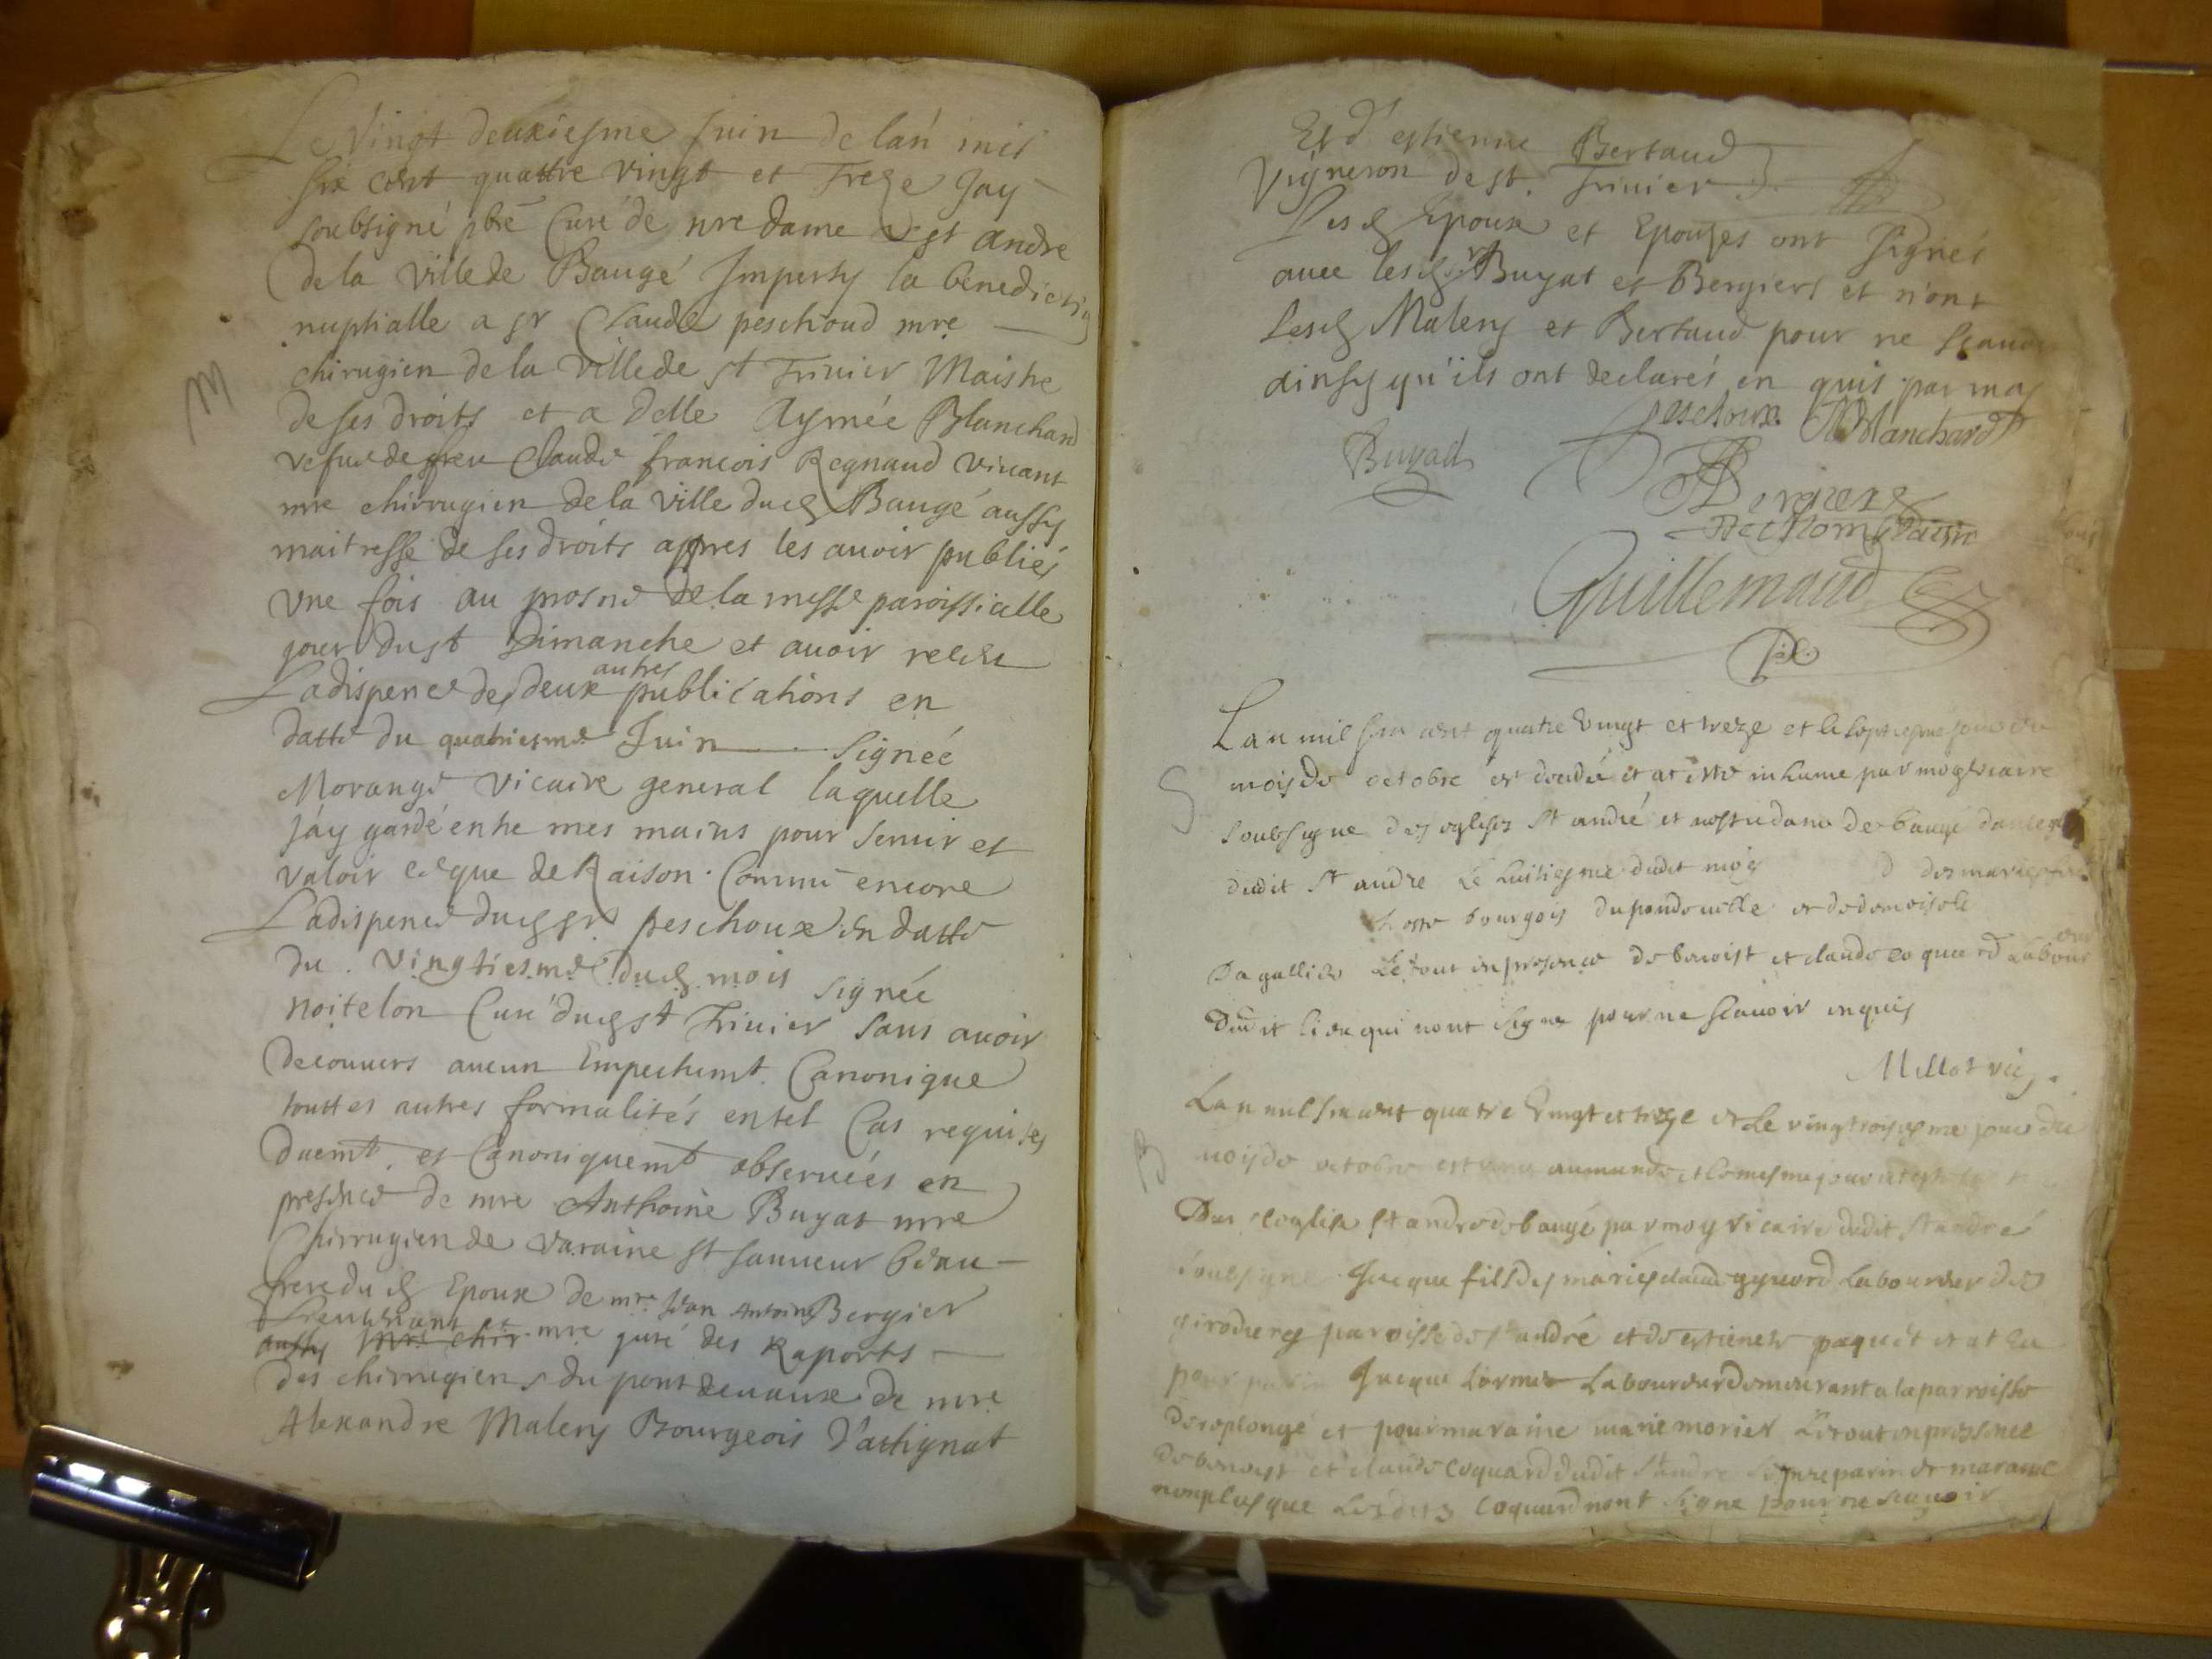 Le Vingt deuxiesme Juin de lan mil
six cent quattre vingt et Treze Jay
soubsigné pbre Curé de nre dame et st andre
de la ville de Baugé Imparty la benediction
nuptialle a sr Claude peschoud mre
M
chirugien de la Ville de st Trivier Maistre
de ses droits et a delle Aymée Blanchard
vefue de feu Claude francois Regnaud vivant
mre chirrugien de la ville dud Baugé aussy
maitresse de ses droits appres les avoir publiés
vne fois au prosne de la messe paroissialle
jour dust Dimanche et avoir receu
autres
La dispence des deux publications en
datte du quatriesme Juin signée
Morange Vicaire general laquelle
Jáy gardé entre mes mains pour servir et
valoir ce que de Raison. Comme encore
La dispence dud sr peschoux en datte
du vingtiesme dud mois signée
noitelon Curé dud st Trivier sans avoir
decouvers aucun Empechemt. Canonique
touttes autres formalités en tel Cas requises
duemt. et Canoniquemt observées en
presence de mre Anthoine Buyat mre
Chirrugien de varaine st sauveur beau
frere dud Epoux de mre Jean Antoine Bergier
Lieutenant et
aussy mre chir mre juré des Raports
des chirrugiens du pont devaux de mre
Alexandre Maleny Bourgeois D'attignat
Et d' estienne Bertaud
Vigneron de st. Trivier
Lesd Epoux et Epouzes ont signés
avec lesd srs Buyat et Bergiers et n'ont
Lesd Maleny et Bertaud pour ne scavoir
ainsy qu'ils ont declarés en quis par moy
peschoux Blanchard
Buyad
Bergier
Guillemaud
L an mil six cent quatre vingt et treze et le septiesme jour du
S
mois de octobre est decedé et at este inhume par moy vicaire
soubsigne des eglises st andré et nostre dame de baugé dans
dudit st andre Le huitiesme dudit mois des maries
bourgois du pondeuelle et de demoiselle
Dagallier Le tout en presence de benoist et claude coquard Labour
eur
dudit lieu qui nont signe pour ne scavoir enquis
Millot vic.
L an mil six cent quatre vingt et treze et Le vingtroisyesme jour du
B
mois de octobre est venu au monde et le mesme jour
Dans leglise st andre de baugé par moy vicaire dudit st andré
soubsigne Jacque fils des mariés claude gyuord Laboureur des
girodieres parroisse de st andré et de estienete paquet et at eu
pour parin Jacque Lormet Laboureur demeurant a la parroisse
de replonge et pour maraine marie morier Le tout en presence
de benoist et claude coquard dudit st andre Le pere parin et maraine
non plus que Lesdits coquard nont signe pour ne scavoir